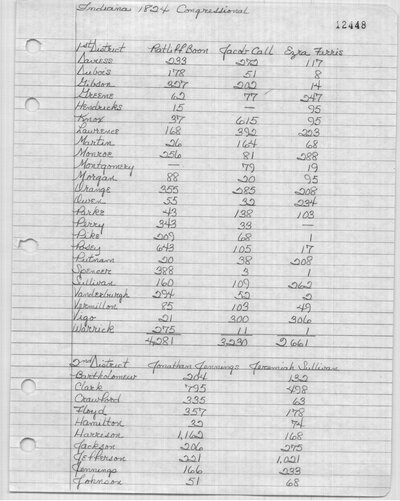 Indiana 1824 Congressional
12448
1st District Ratliff Boon Jacob Call Ezra Ferris
Daviess 233 272 117
Dubois 178 51 8
Gibson 327 202 14
Greene 62 77 247
Hendricks 15 — 95
Knox 37 615 95
Lawrence 168 392 223
Martin 26 164 68
Monroe 256 81 288
Montgomery — 79 19
Morgan 88 20 95
Orange 355 285 208
Owen 55 32 234
Parke 43 138 103
Perry 343 33 —
Pike 209 68 1
Posey 643 105 17
Putnam 20 38 208
Spencer 388 3 1
Sullivan 160 109 262
Vanderburgh 294 52 2
Vermillon 85 103 49
Vigo 21 300 306
Warrick 275 11 1
4,281 3,230 2,661
2nd District Jonathan Jennings Jeremiah Sullivan
Bartholomew 204 132
Clark 795 498
Crawford 335 63
Floyd 357 178
Hamilton 32 74
Harrison 1,162 168
Jackson 206 275
Jefferson 221 1,021
Jennings 166 233
Johnson 51 68